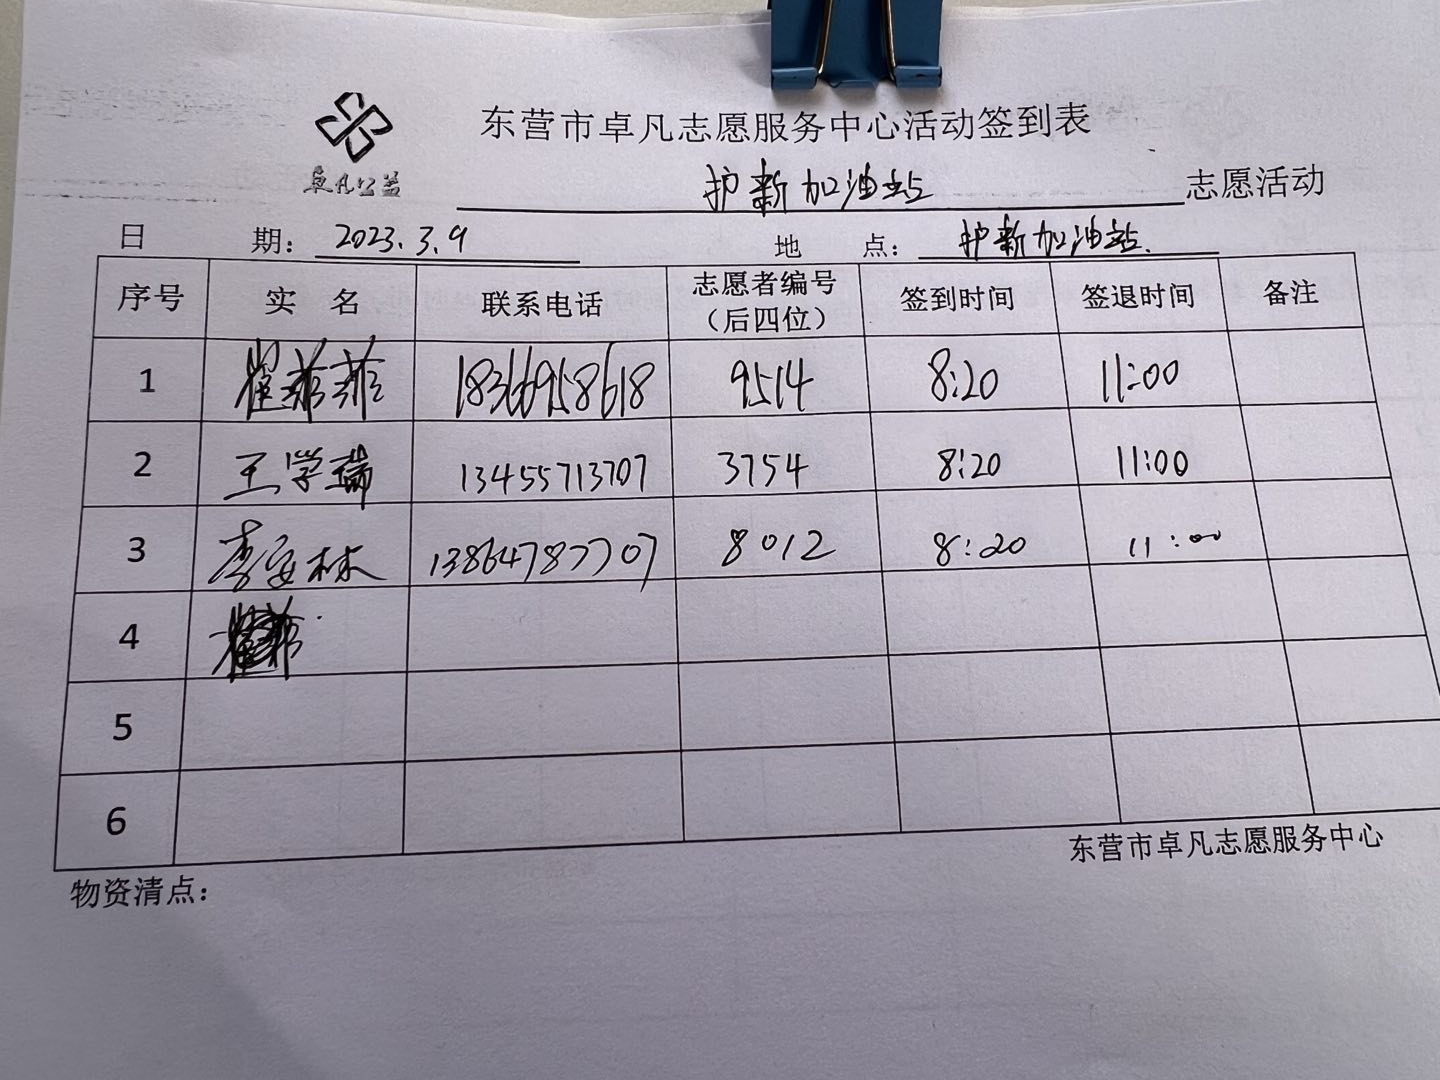 东营市卓凡志愿服务中心活动签到表
卓凡公益
护新加油站 志愿活动
日 期：2023.3.9 地 点：护新加油站.
序号 实 名 联系电话 志愿者编号（后四位） 签到时间 签退时间 备注
1 崔菲菲 18366958618 9514 8:20 11:00
2 王学瑞 13455713707 3754 8:20 11:00
3 李安林 13864787707 8012 8:20 11:00
4
5
6
东营市卓凡志愿服务中心
物资清点：